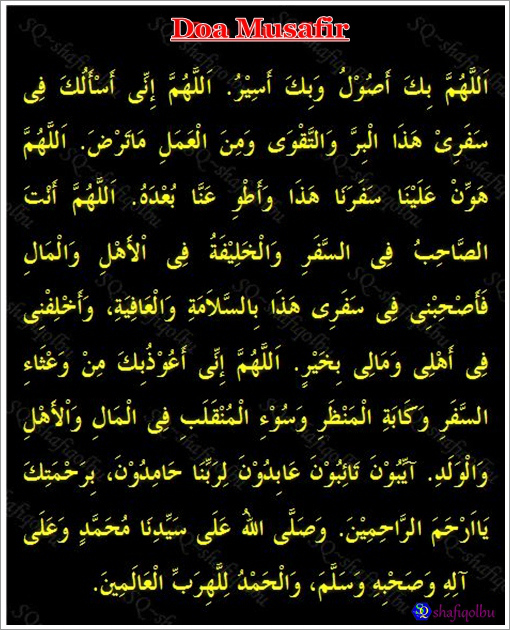 Doa Musafir
اَللَّهُمَّ بِكَ أَصُوْلُ وَبِكَ أَسِيْرُ. اَللَّهُمَّ إِنِّى أَسْأَلُكَ فِى
سَفَرِىْ هَذَا الْبِرَّ وَالتَّقْوَى وَمِنَ الْعَمَلِ مَاتَرْضَ. اَللَّهُمَّ
هَوِّنْ عَلَيْنَا سَفَرَنَا هَذَا وَأَطْوِ عَنَّا بُعْدَهُ. اَللَّهُمَّ أَنْتَ
الصَّاحِبُ فِى السَّفَرِ وَالْخَلِيْفَةُ فِى اْلأَهْلِ وَالْمَالِ
فَأَصْحِبْنِى فِى سَفَرِى هَذَا بِالسَّلاَمَةِ وَالْعَافِيَةِ، وَأَخْلِفْنِى
فِى أَهْلِى وَمَالِى بِخَيْرٍ. اَللَّهُمَّ إِنِّى أَعُوْذُبِكَ مِنْ وَعْثَاءِ
السَّفَرِ وَكَابَةِ الْمَنْظَرِ وَسُوْءِ الْمُنْقَلَبِ فِى الْمَالِ وَاْلأَهْلِ
وَالْوَلَدِ. آيِّبُوْنَ تَائِبُوْنَ عَابِدُوْنَ لِرَبِّنَا حَامِدُوْنَ، بِرَحْمَتِكَ
يَااَرْحَمَ الرَّاحِمِيْنَ. وَصَلَّى اللهُ عَلَى سَيِّدِنَا مُحَمَّدٍ وَعَلَى
آلِهِ وَصَحْبِهِ وَسَلَّمَ، وَالْحَمْدُ لِلَّهِرَبِّ الْعَالَمِينَ.
SQ shafiqolbu